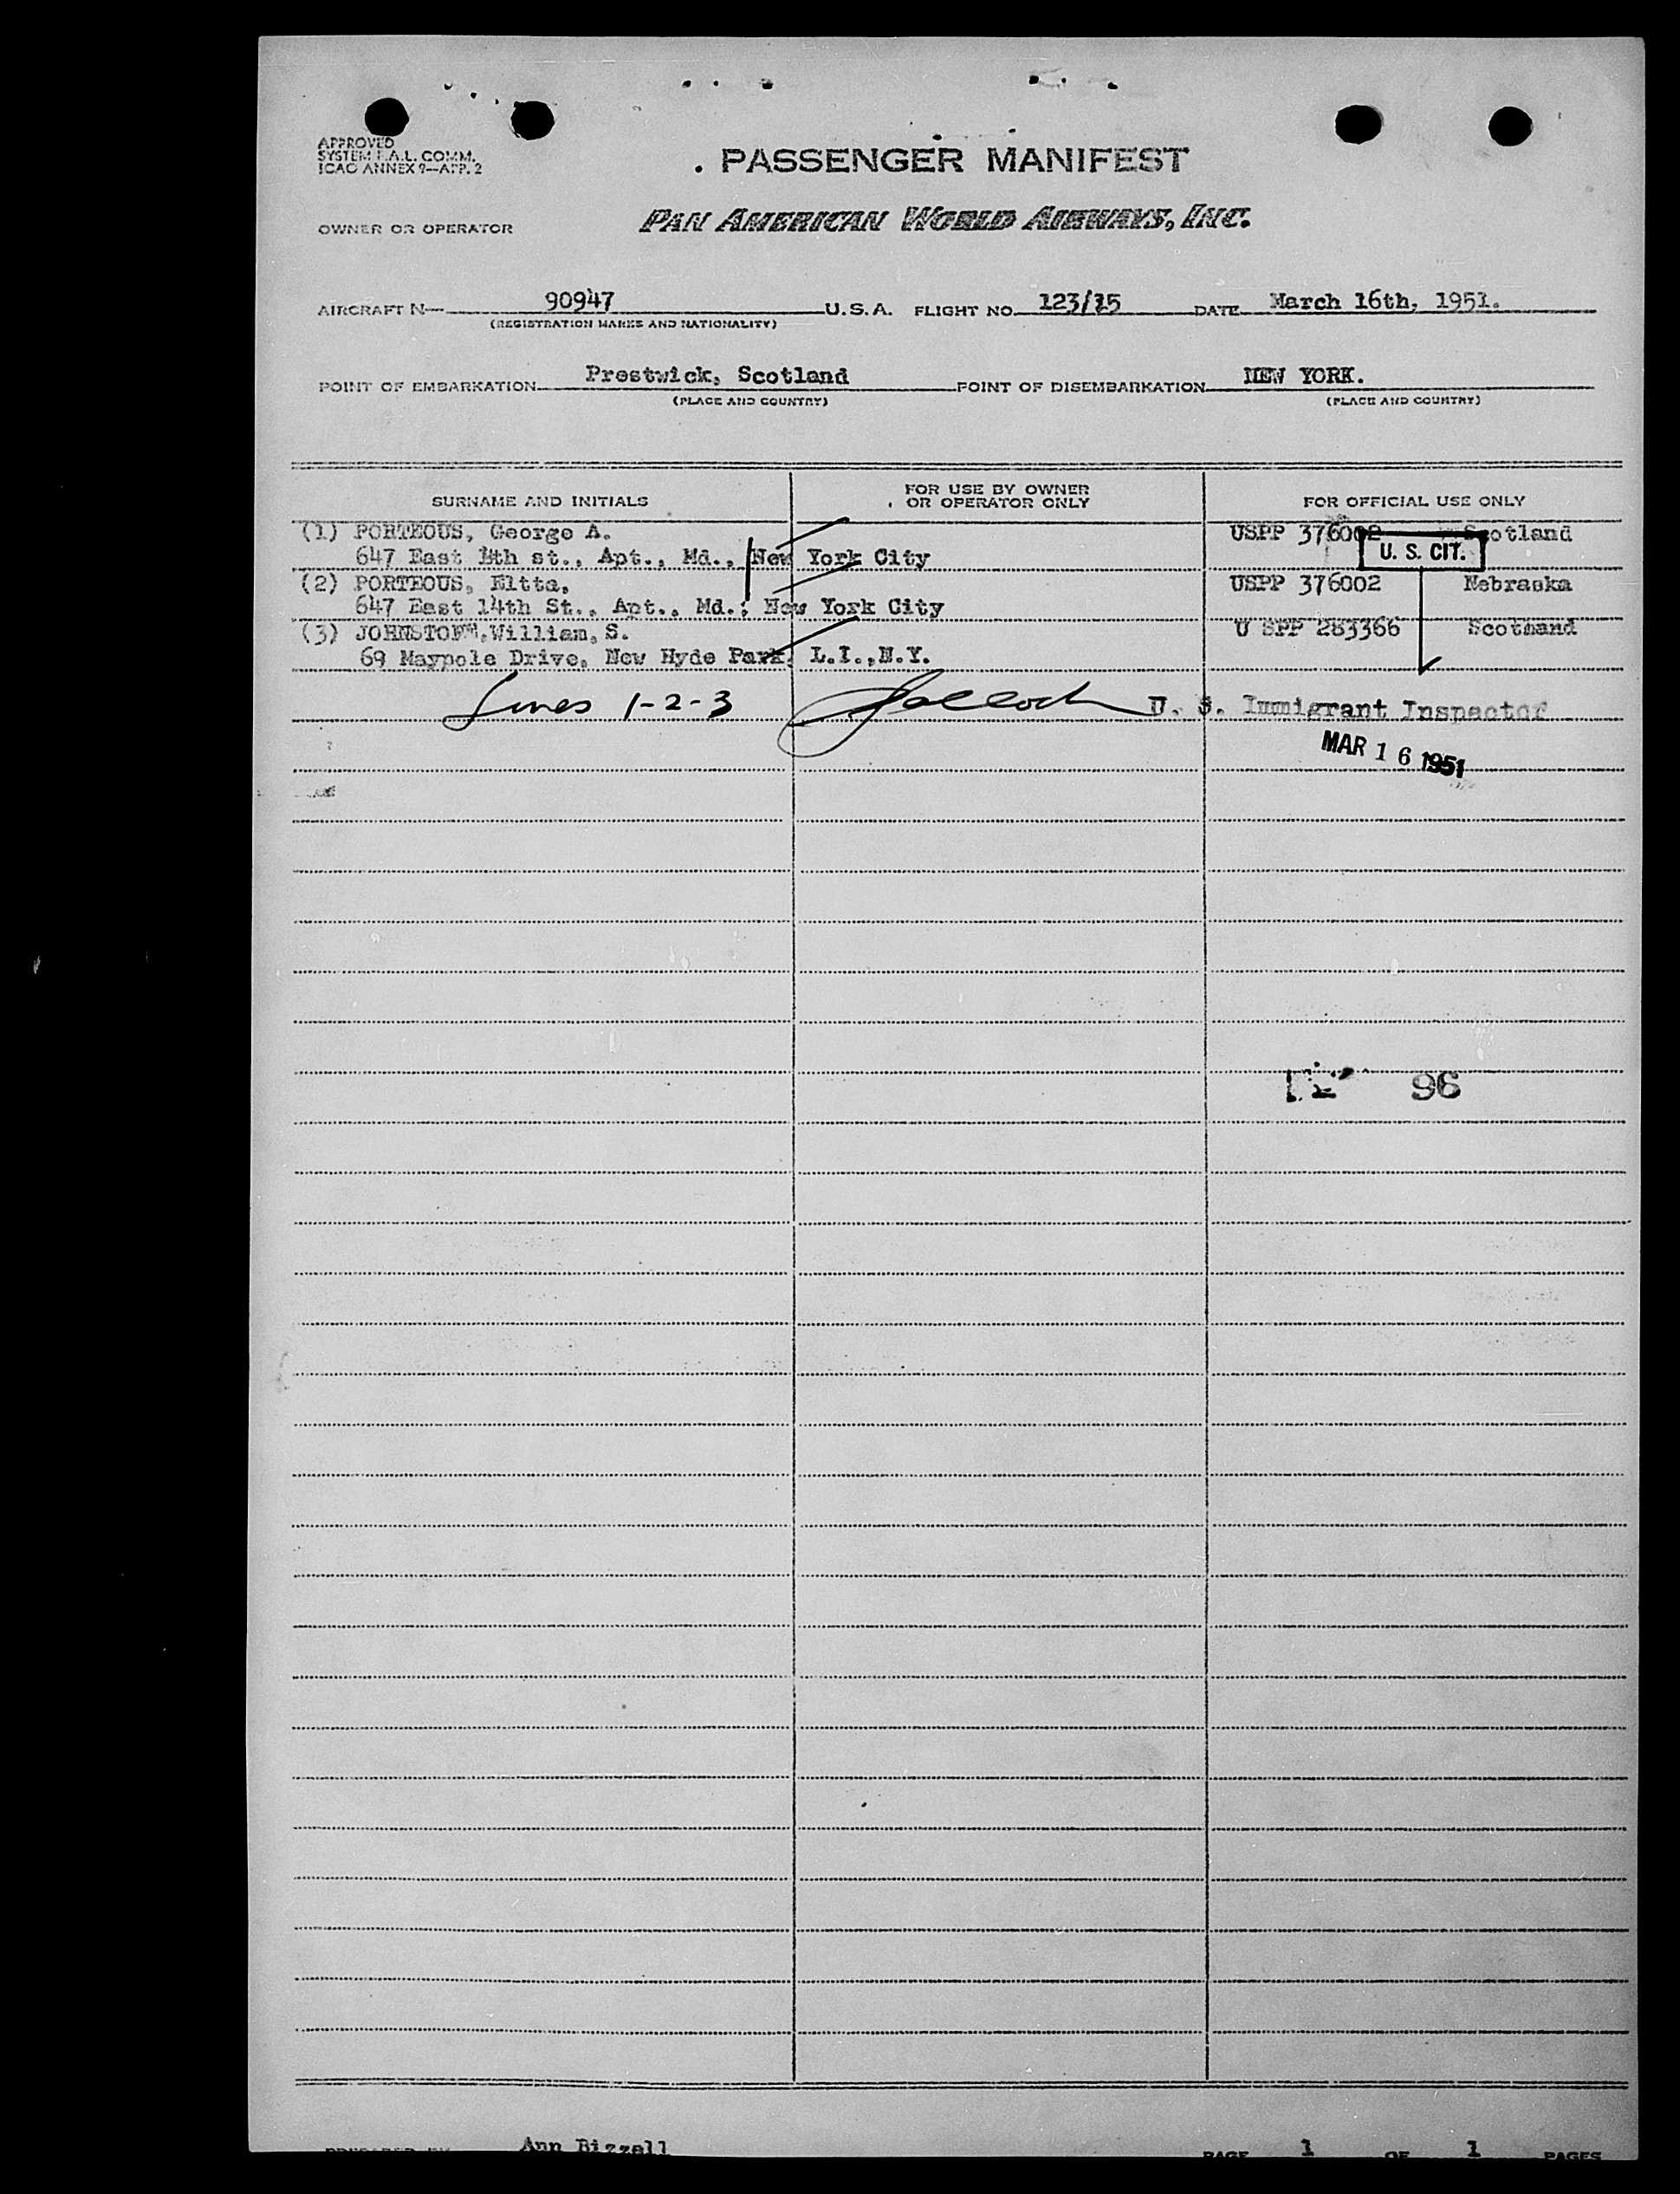 APPROVED
SYSTEM F.A.L. COMM.
ICAO ANNEX 9—APP. 2
. PASSENGER MANIFEST
OWNER OR OPERATOR PAN AMERICAN WORLD AIRWAYS, INC.
AIRCRAFT N— 90947 U.S.A. FLIGHT NO. 123/15 DATE March 16th, 1951.
(REGISTRATION MARKS AND NATIONALITY)
POINT OF EMBARKATION Prestwick, Scotland POINT OF DISEMBARKATION NEW YORK.
(PLACE AND COUNTRY) (PLACE AND COUNTRY)
SURNAME AND INITIALS FOR USE BY OWNER OR OPERATOR ONLY FOR OFFICIAL USE ONLY
(1) PORTEOUS, George A. USPP 376002 Scotland
647 East 14th st., Apt., Md., New York City U. S. CIT.
(2) PORTEOUS, Eltta, USPP 376002 Nebraska
647 East 14th St., Apt., Md., New York City
(3) William, S. U SPP 283366 Scotland
69 Maypole Drive, New Hyde Park, L.I.,N.Y.
Lines 1-2-3 U. S. Immigrant Inspector
MAR 16 1951
96
PREPARED BY Ann Bizzell PAGE 1 OF 1 PAGES